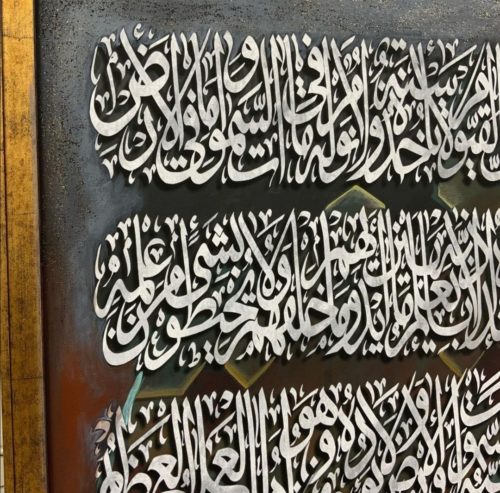 القيوم لا تأخذه سنة ولا نوم له ما في السموات وما في الأرض
إلا بإذنه يعلم ما بين أيديهم وما خلفهم ولا يحيطون بشيء من علمه
ولا يؤده وهو العلي العظيم